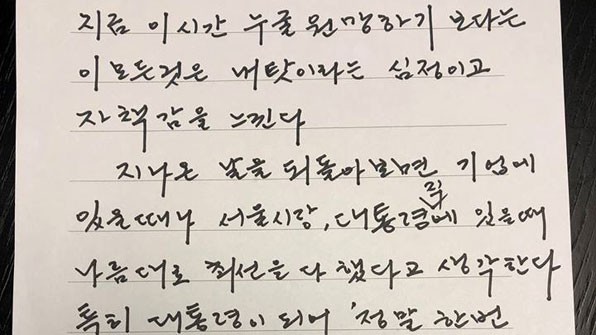 지금 이 시간 누굴 원망하기 보다는
이 모든것은 내 탓이라는 심정이고
자책감을 느낀다
지나온 날을 되돌아보면 기업에
있을 때나 서울시장, 대통령직에 있을때
나름대로 최선을 다 했다고 생각한다
특히 대통령이 되어 '정말 한번